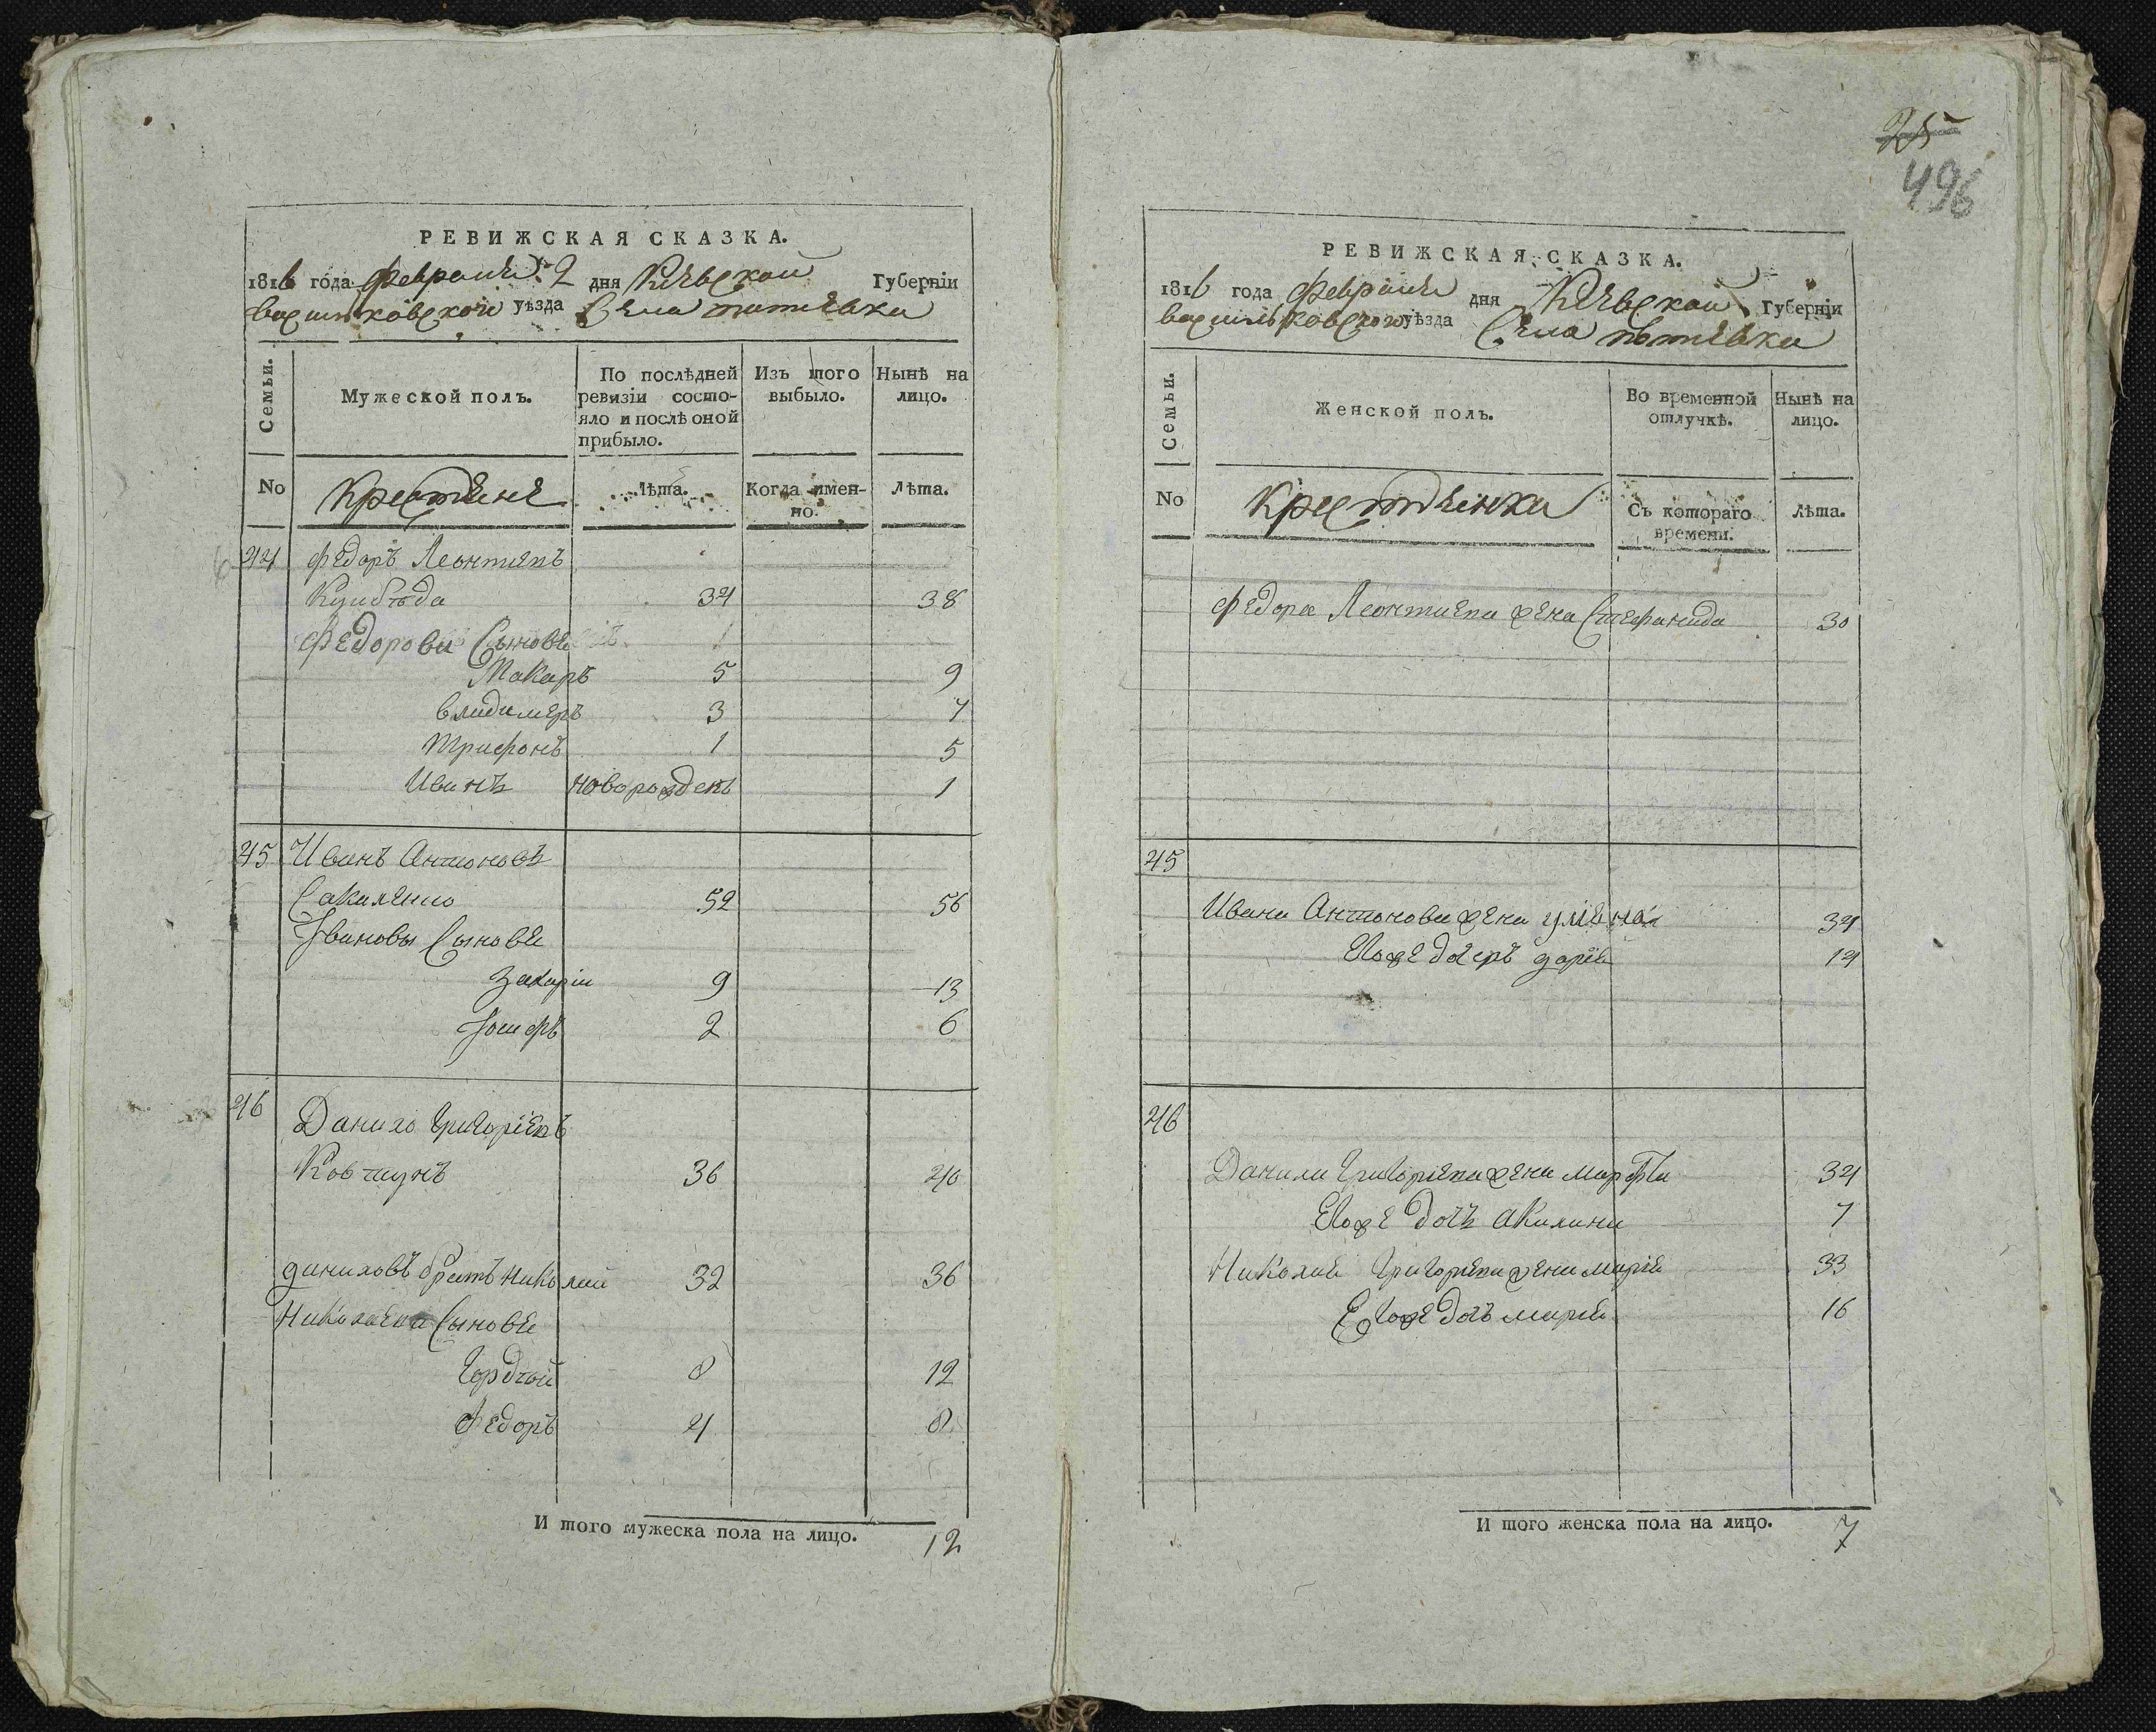 РЕВИЖСКАЯ СКАЗКА.
1816 года февраля 2 дня Киевской Губерніи
васильковской уѣзда Села
Семьи.
Мужеской полъ.
По послѣдней ревизіи состояло и послѣ оной прибыло.
Изъ того выбыло.
Нынѣ на лицо.
No
Крестяне
Лѣта.
Когда именно.
Лѣта.
44 Федоръ Леонтиевъ
34 38
Федорова Сыновя
Макаръ 5 9
владимеръ 3 7
Трифонъ 1 5
Иванъ новорожденъ 1
45 Иванъ Антоновъ
52 56
Ивановы Сыновя
Захарія 9 13
Іосифъ 2 6
46 Данило Григоріевъ
Ковтунъ 36 40
даниловъ братъ николай 32 36
николаева Сыновя
Гордѣй 8 12
Федоръ 4 8
И того мужеска пола на лицо. 12
25
496
РЕВИЖСКАЯ СКАЗКА.
1816 года февраля дня Киевской Губерніи
васильковского уѣзда Села
Семьи.
Женской полъ.
Во временной отлучкѣ.
Нынѣ на лицо.
No
крестянки
Съ котораго времени.
Лѣта.
Федора Леонтиева жена Стефанида 30
45
Ивана Антонова жена 34
Егоже дочеръ дарія 14
46
Данила Григоріева жена марфа 34
Егоже дочъ акилина 7
Николая Григориева жена марія 33
Егоже дочъ марія 16
И того женска пола на лицо. 7